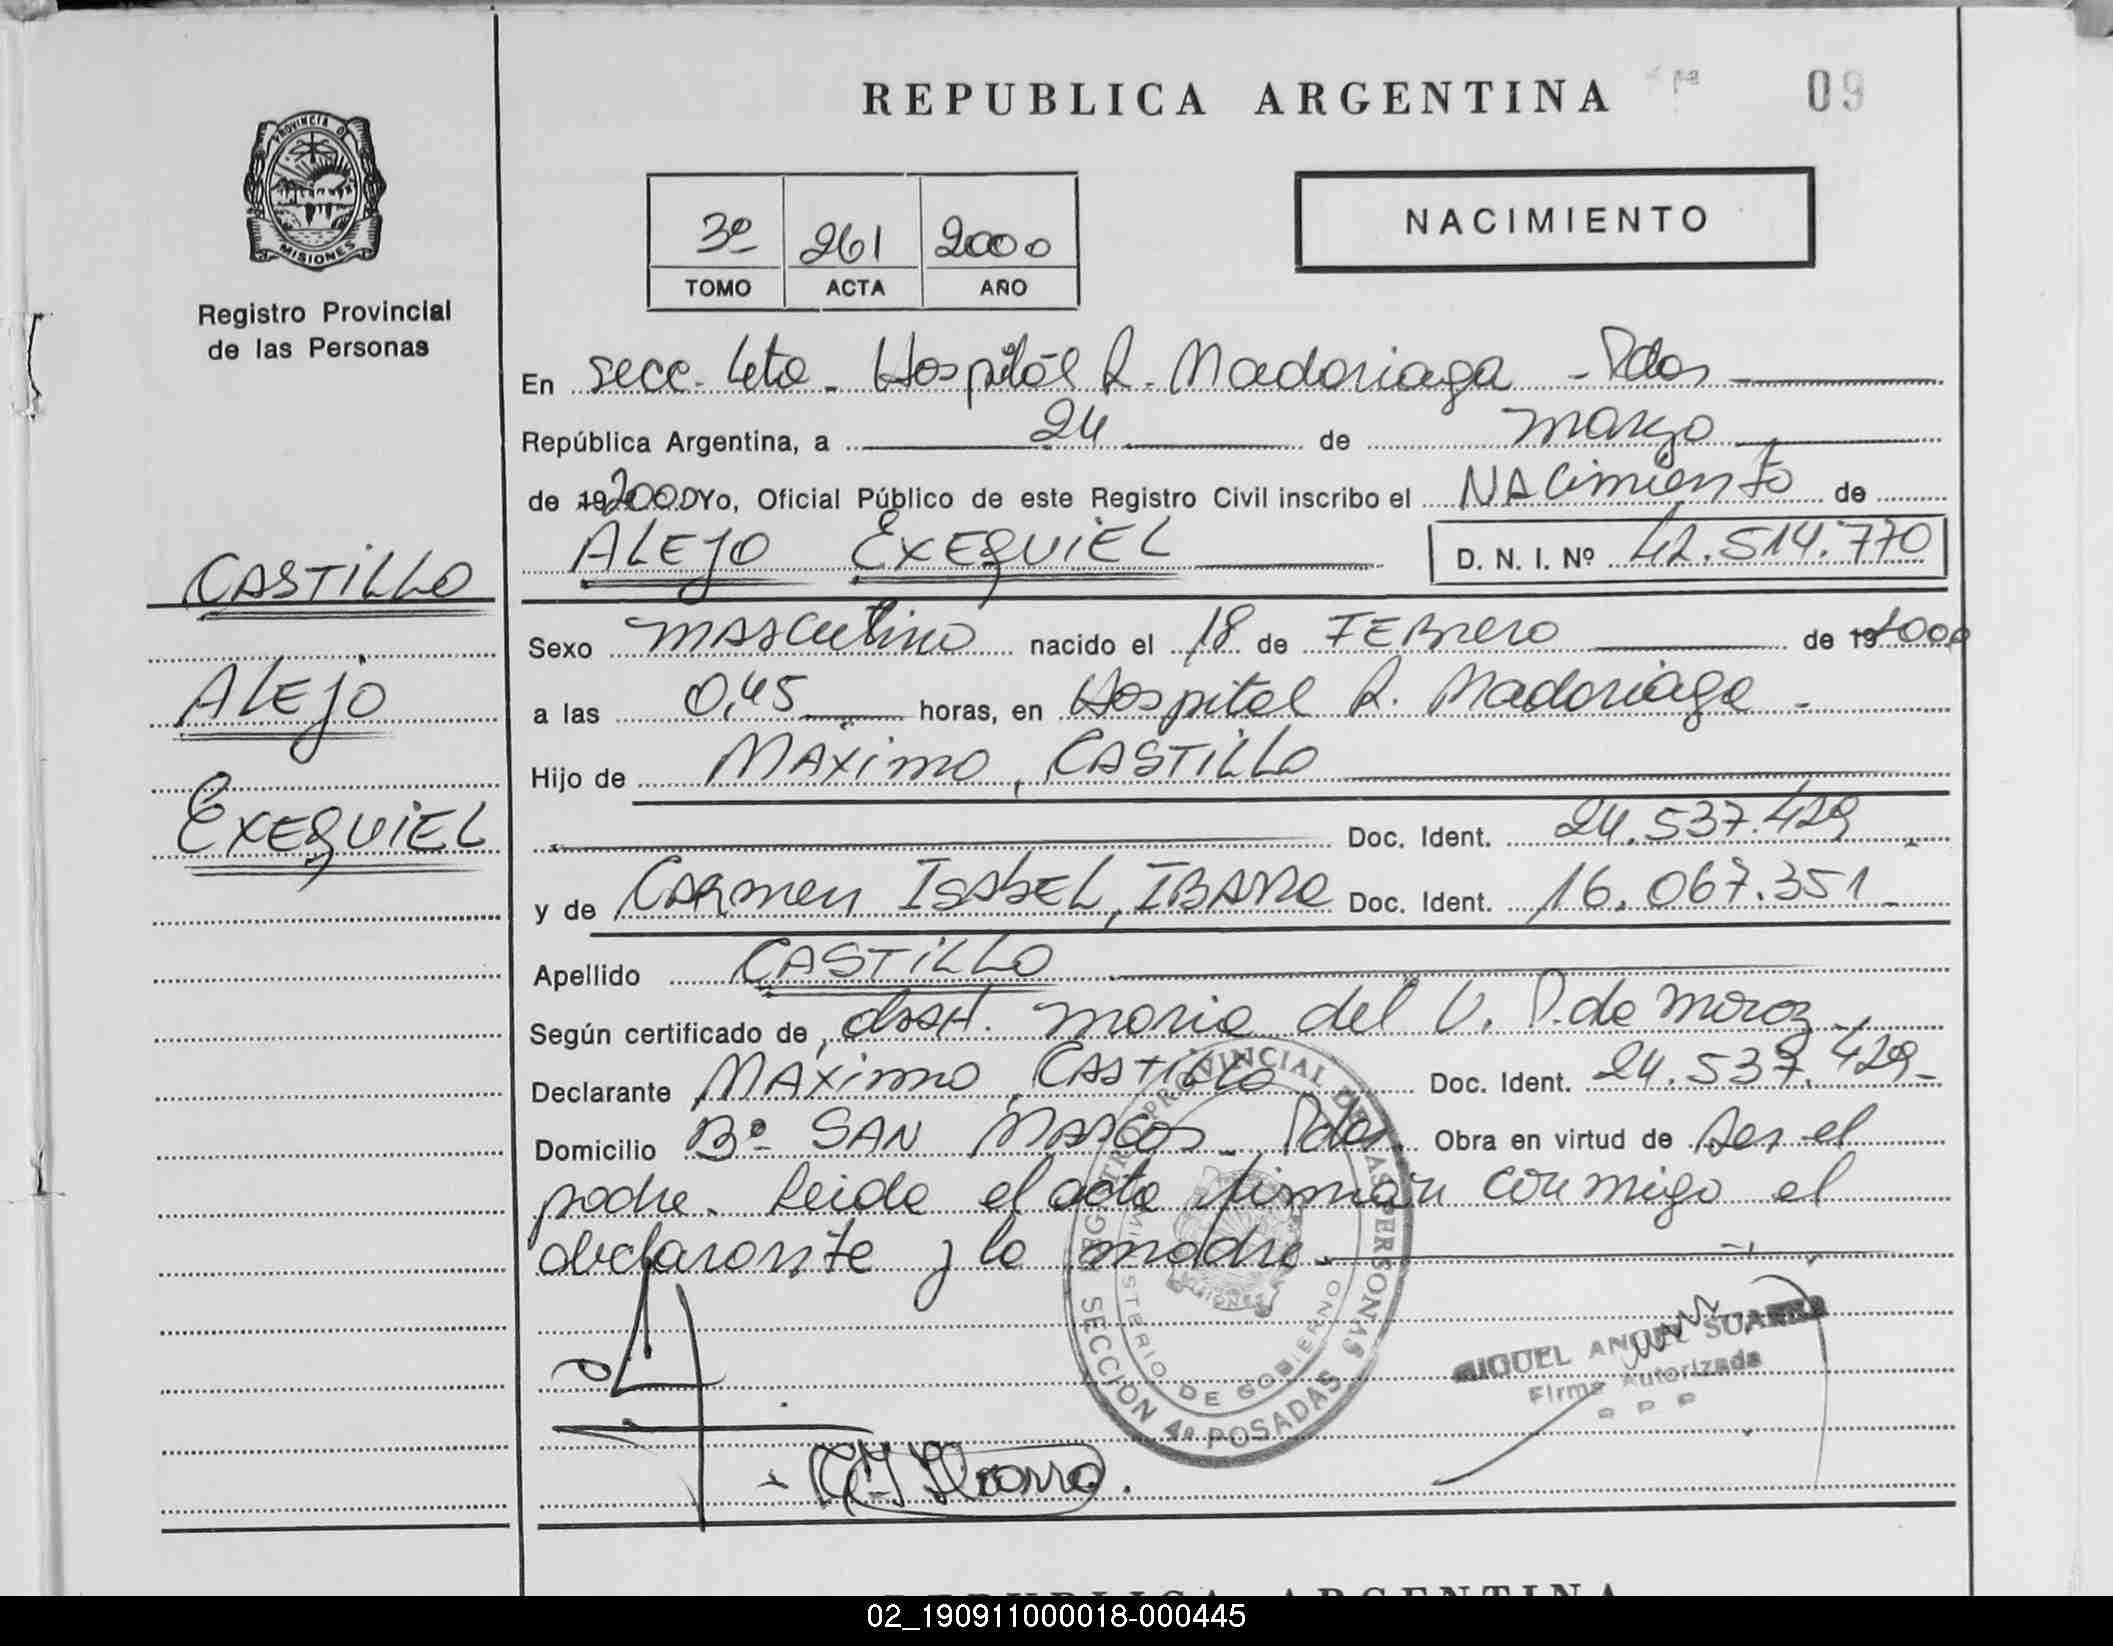 REPUBLICA ARGENTINA
09
PROVINCIA D
MISIONES
Registro Provincial
de las Personas
3º 261 2000
TOMO ACTA AÑO
NACIMIENTO
En secc. 4ta - Hospital R. Madariaga - Pdas
República Argentina, a 24 de marzo
de 19 2000 Yo, Oficial Público de este Registro Civil inscribo el NACimiento de
ALEJO EXEQUIEL D. N. I. Nº 42.514.770
CASTILLO
ALEJO
EXEQUIEL
Sexo MASCULino nacido el 18 de FEBrero de 19 2000
a las 0,45 horas, en Hospital R. Madariaga -
Hijo de MAXimo, CASTILLO
Doc. Ident. 24.537.429
y de CARmen ISABEL, IBARRA Doc. Ident. 16.067.351
Apellido CASTILLO
Según certificado de, obst. maria del V. P. de
Declarante MAXimo, CASTILLO Doc. Ident. 24.537.429-
Domicilio Bº SAN MARCOS - Pdas. Obra en virtud de ser el
padre. Leida el acta firman conmigo el
declarante y la madre.
REGISTRO PROVINCIAL DE LAS PERSONAS
MINISTERIO DE GOBIERNO
MISIONES
SECCION 4ª POSADAS
MIGUEL ANGEL SUAREZ
Firma Autorizada
C I Ibarra.
REPUBLICA ARGENTINA
02_190911000018-000445